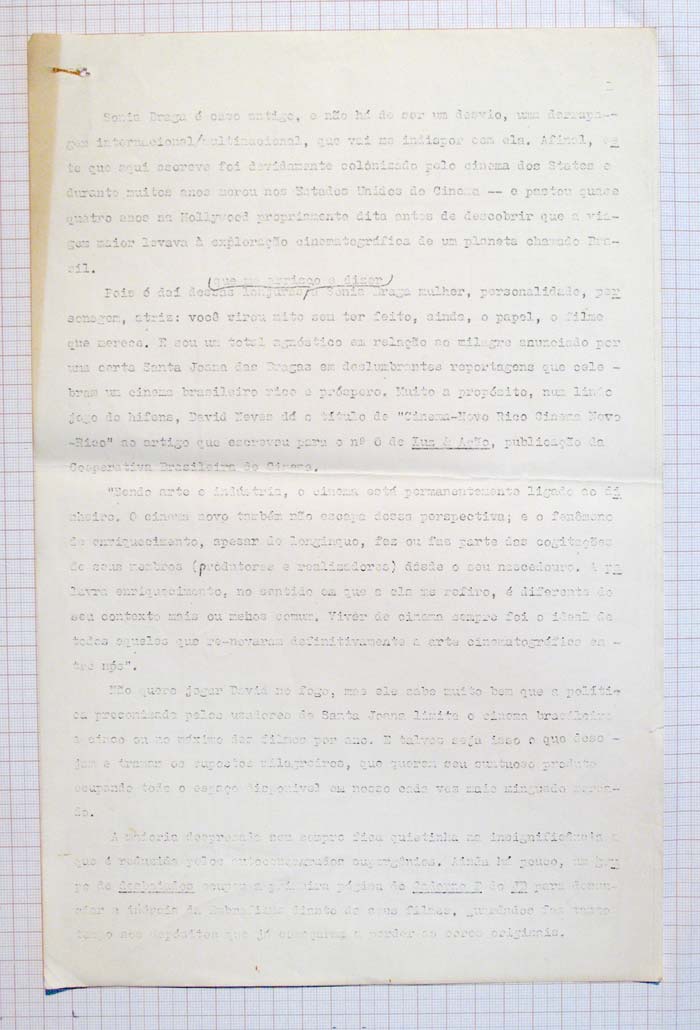 Sonia Braga é caso antigo, e não há de ser um desvio, uma derrapa-
gem internacional/multinacional, que vai me indispor com ela. Afinal, es
te que aqui escreve foi devidamente colonizado pelo cinema dos States e
durante muitos anos morou nos Estados Unidos do Cinema -- e pastou quase
quatro anos na Hollywood propriamente dita antes de descobrir que a via-
gem maior levava à exploração cinematográfica de um planeta chamado Bra-
sil.
que me arrisco a dizer
Pois é daí dessas lonjuras, a Sonia Braga mulher, personalidade, per
sonagem, atriz: você virou mito sem ter feito, ainda, o papel, o filme
que merece. E sou um total agnóstico em relação ao milagre anunciado por
uma certa Santa Joana das Bragas em deslumbrantes reportagens que cele -
bram um cinema brasileiro rico e próspero. Muito a propósito, num lindo
jogo de hífens, David Neves dá o título de "Cinema-Novo Rico Cinema Novo
-Rico" ao artigo que escreveu para o nº 6 de Luz & Ação, publicação da
Cooperativa Brasileira de Cinema.
"Sendo arte e indústria, o cinema está permanentemente ligado ao di
nheiro. O cinema novo também não escapa dessa perspectiva; e o fenômeno
de enriquecimento, apesar de longínquo, fez ou faz parte das cogitações
de seus membros (produtores e realizadores) désde o seu nascedouro. A pa
lavra enriquecimento, no sentido em que a ela me refiro, é diferente do
seu contexto mais ou mehos comum. Viver de cinema sempre foi o ideal de
todos aqueles que re-novaram definitivamente a arte cinematográfica en -
tre nós".
Não quero jogar David no fogo, mas ele sabe muito bem que a políti-
ca preconizada pelos amadores de Santa Joana limita o cinema brasileiro
a cinco ou no máximo dez filmes por ano. E talvez seja isso o que dese -
jam e tramam os supostos milagreiros, que querem seu suntuoso produto
ocupando todo o espaço disponível em nosso cada vez mais minguado merca-
do.
A maioria desprezada nem sempre fica quietinha na insignificância a
que é reduzida pelos autoconsagrados supergênios. Ainda há pouco, um gru
po de desbaiados ocupou a primeira página do Caderno B do JB para denun-
ciar a inércia da Embrafilme diante de seus filmes, guardados faz tanto
tempo nos depósitos que já começaram a perder as cores originais.